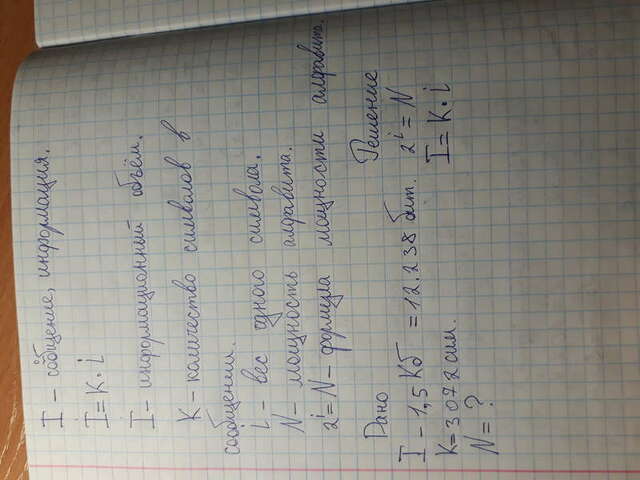 I - сообщение, информация.
I = K · i
I - информационный объём.
K - количество символов в
сообщении.
i - вес одного символа.
N - мощность алфавита.
2^i = N - формула мощности алфавита.
Дано Решение
I - 1,5 Кб = 12.238 бит. 2^i = N
K = 3072 сим. I = K · i
N = ?